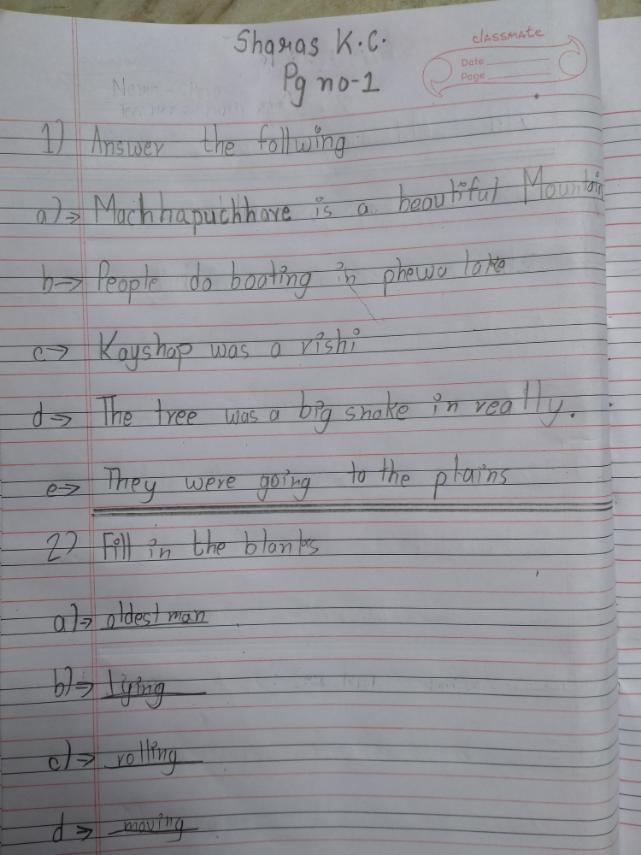 Sharas K.C.
classmate
Date
Page
Pg no-1
1) Answer the follwing
a)⇒ Machhapuchhare is a beautiful Mountain
b→ People do boating in phewa lake
c→ Kayshap was a rishi
d→ The tree was a big snake in really.
e→ They were going to the plains
2) Fill in the blanks
a)⇒ oldest man
b)⇒ lying
c)⇒ rolling
d⇒ moving